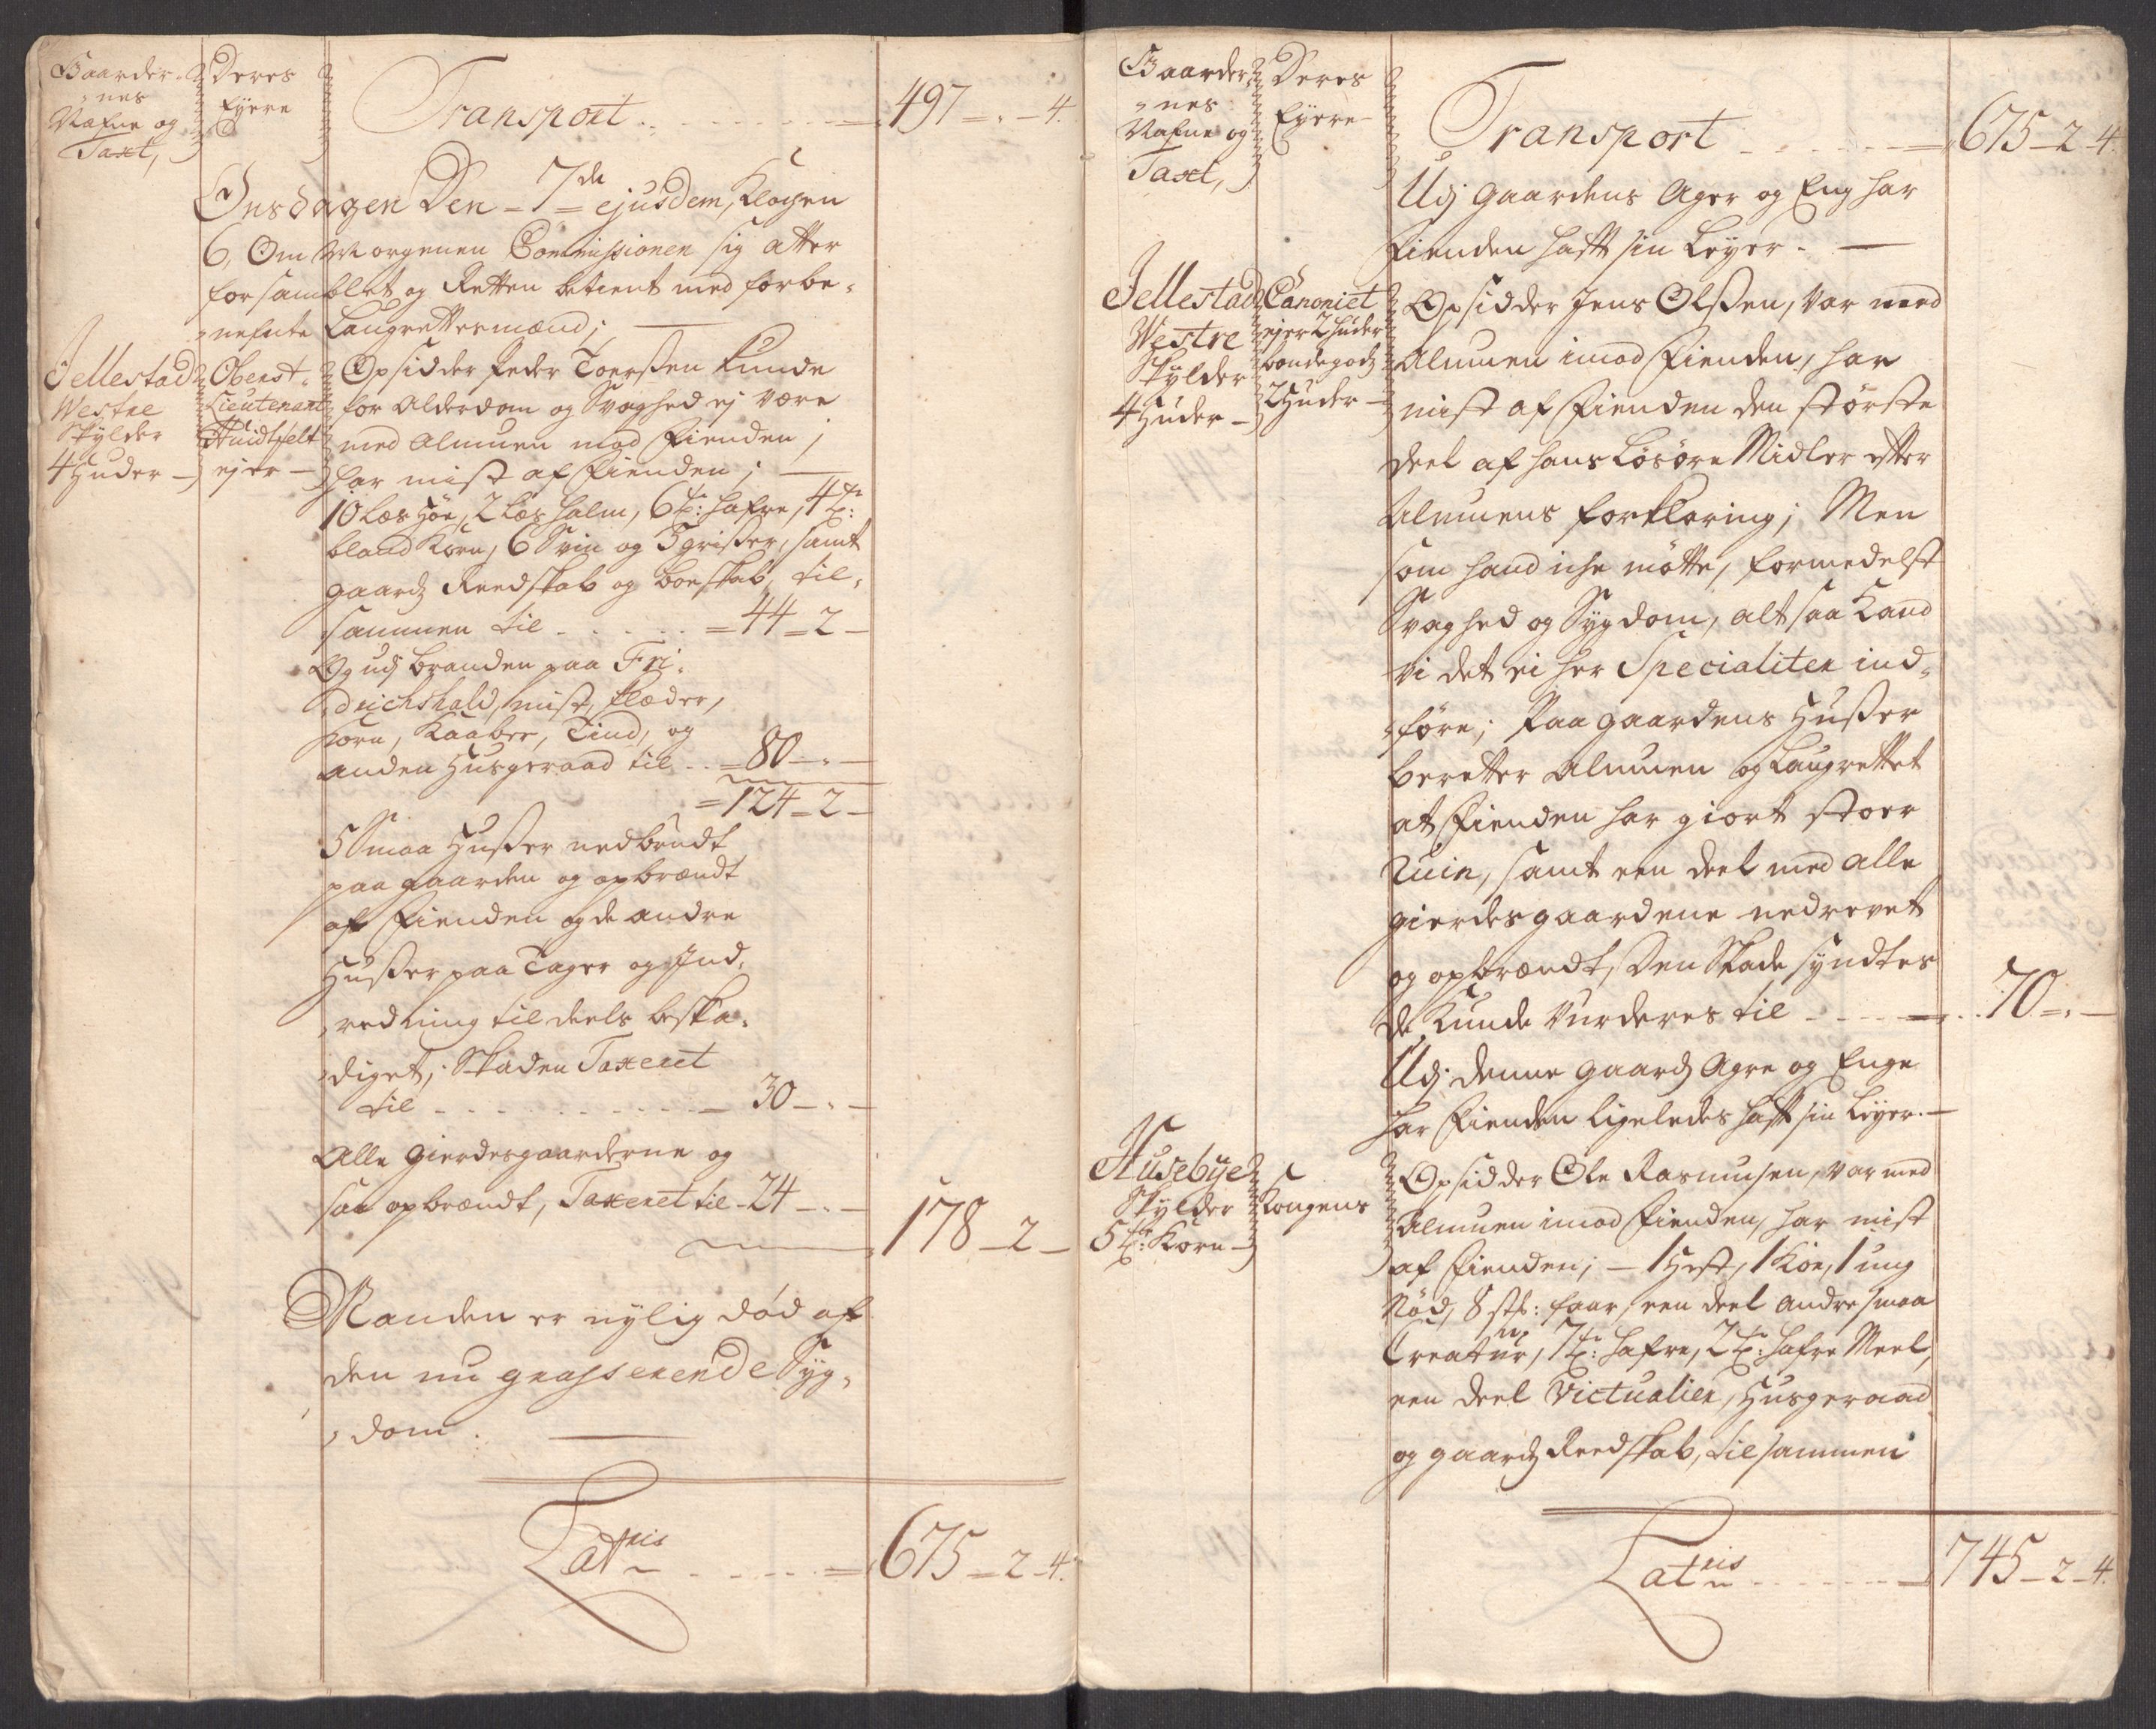 Gaarder-
nes
Nafne og
Taxt,
Deres
Eyere
Transport . . . . . . 497 - . - 4.
Onsdagen Den - 7de = ejusdem, Klochen
6, Om Morgenen Commissionen sig atter
forsamblet og Retten betient med forbe-
nefnte Laugrettesmænd; —
Jellestad
Westre
Skylder
4 Huder —
Oberst-
Lieutenant
Huidtfelt
ejer —
Opsidder Peder Toersen kunde
for Alderdom og Svaghed ej være
med Almuen mod Fienden;
har mist af Fienden; —
10 Læs Høe, 2 Læs halm, 6 tr: hafre, 4 tr:
bland Korn, 6 Sviin og 3 grisser, samt
gaardz Reedskab og boeskab, til-
sammen til . . . . . = 44 = 2 —
Og udj branden paa Fri-
drichshald, mist, klæder,
Korn, Kaaber, Tind, og
anden Husgeraad til . . = 80 - . —
= 124 = 2 —
5 Smaa Husser nedbrudt
paa gaarden og opbrændt
af Fienden og de andre
Husser paa Tager og Ind-
redning til deels beska-
diget; Skaden Taxeret
til . . . . . . . . — 30 - . —
Alle Gierdesgaarderne og
saa opbrændt, Taxeret til - 24 - . —
178 - 2 —
Manden er nylig død af
den nu grasserende Syg-
dom . —
Latris . . . . . = 675 = 2 - 4.
Gaarder-
nes
Nafne og
Taxt,
Deres
Eyere
Transport . . . . . 675 - 2 - 4.
Udj Gaardens Ager og Eng har
Fienden haft sin Leyer. —
Jellestad
Westre
Skylder
4 Huder —
Canoniet
ejer 2 huder
bondegodz
2 Huder —
Opsidder Jens Olssen, Var med
Almuen imod Fienden, har
mist af Fienden den største
deel af hans Løsøre Midler efter
Almuens forklaring; Men
som hand iche møtte, formedelst
Svaghed og Sygdom, altsaa Kand
vi det ei her Specialiter ind-
føre; Paa gaardens Husser
beretter Almuen og Laugrettet
at Fienden har giort stoer
Ruin, samt een deel med alle
gierdesgaardene nedrevet
og opbrændt, Den Skade syndtes
de kunde Vurderes til . . . . = . . 70 - . —
Udj denne gaardz Agre og Enge
har Fienden ligeledes haft sin Leyer. —
Husebye
Skylder
5 tr: Korn —
Kongens
Opsidder Ole Rasmusen, Var med
Almuen imod Fienden, har mist
af Fienden; — 1 Hest, 1 Koe, 1 ung
Nød, 8 stk: faar, een deel andre smaa
Creatur, 7 tr: hafre, 2 tr: hafre Meel,
een deel Victualier, Husgeraad
og gaardz Reedskab, tilsammen
Latris . . . . . = 745 - 2 - 4.